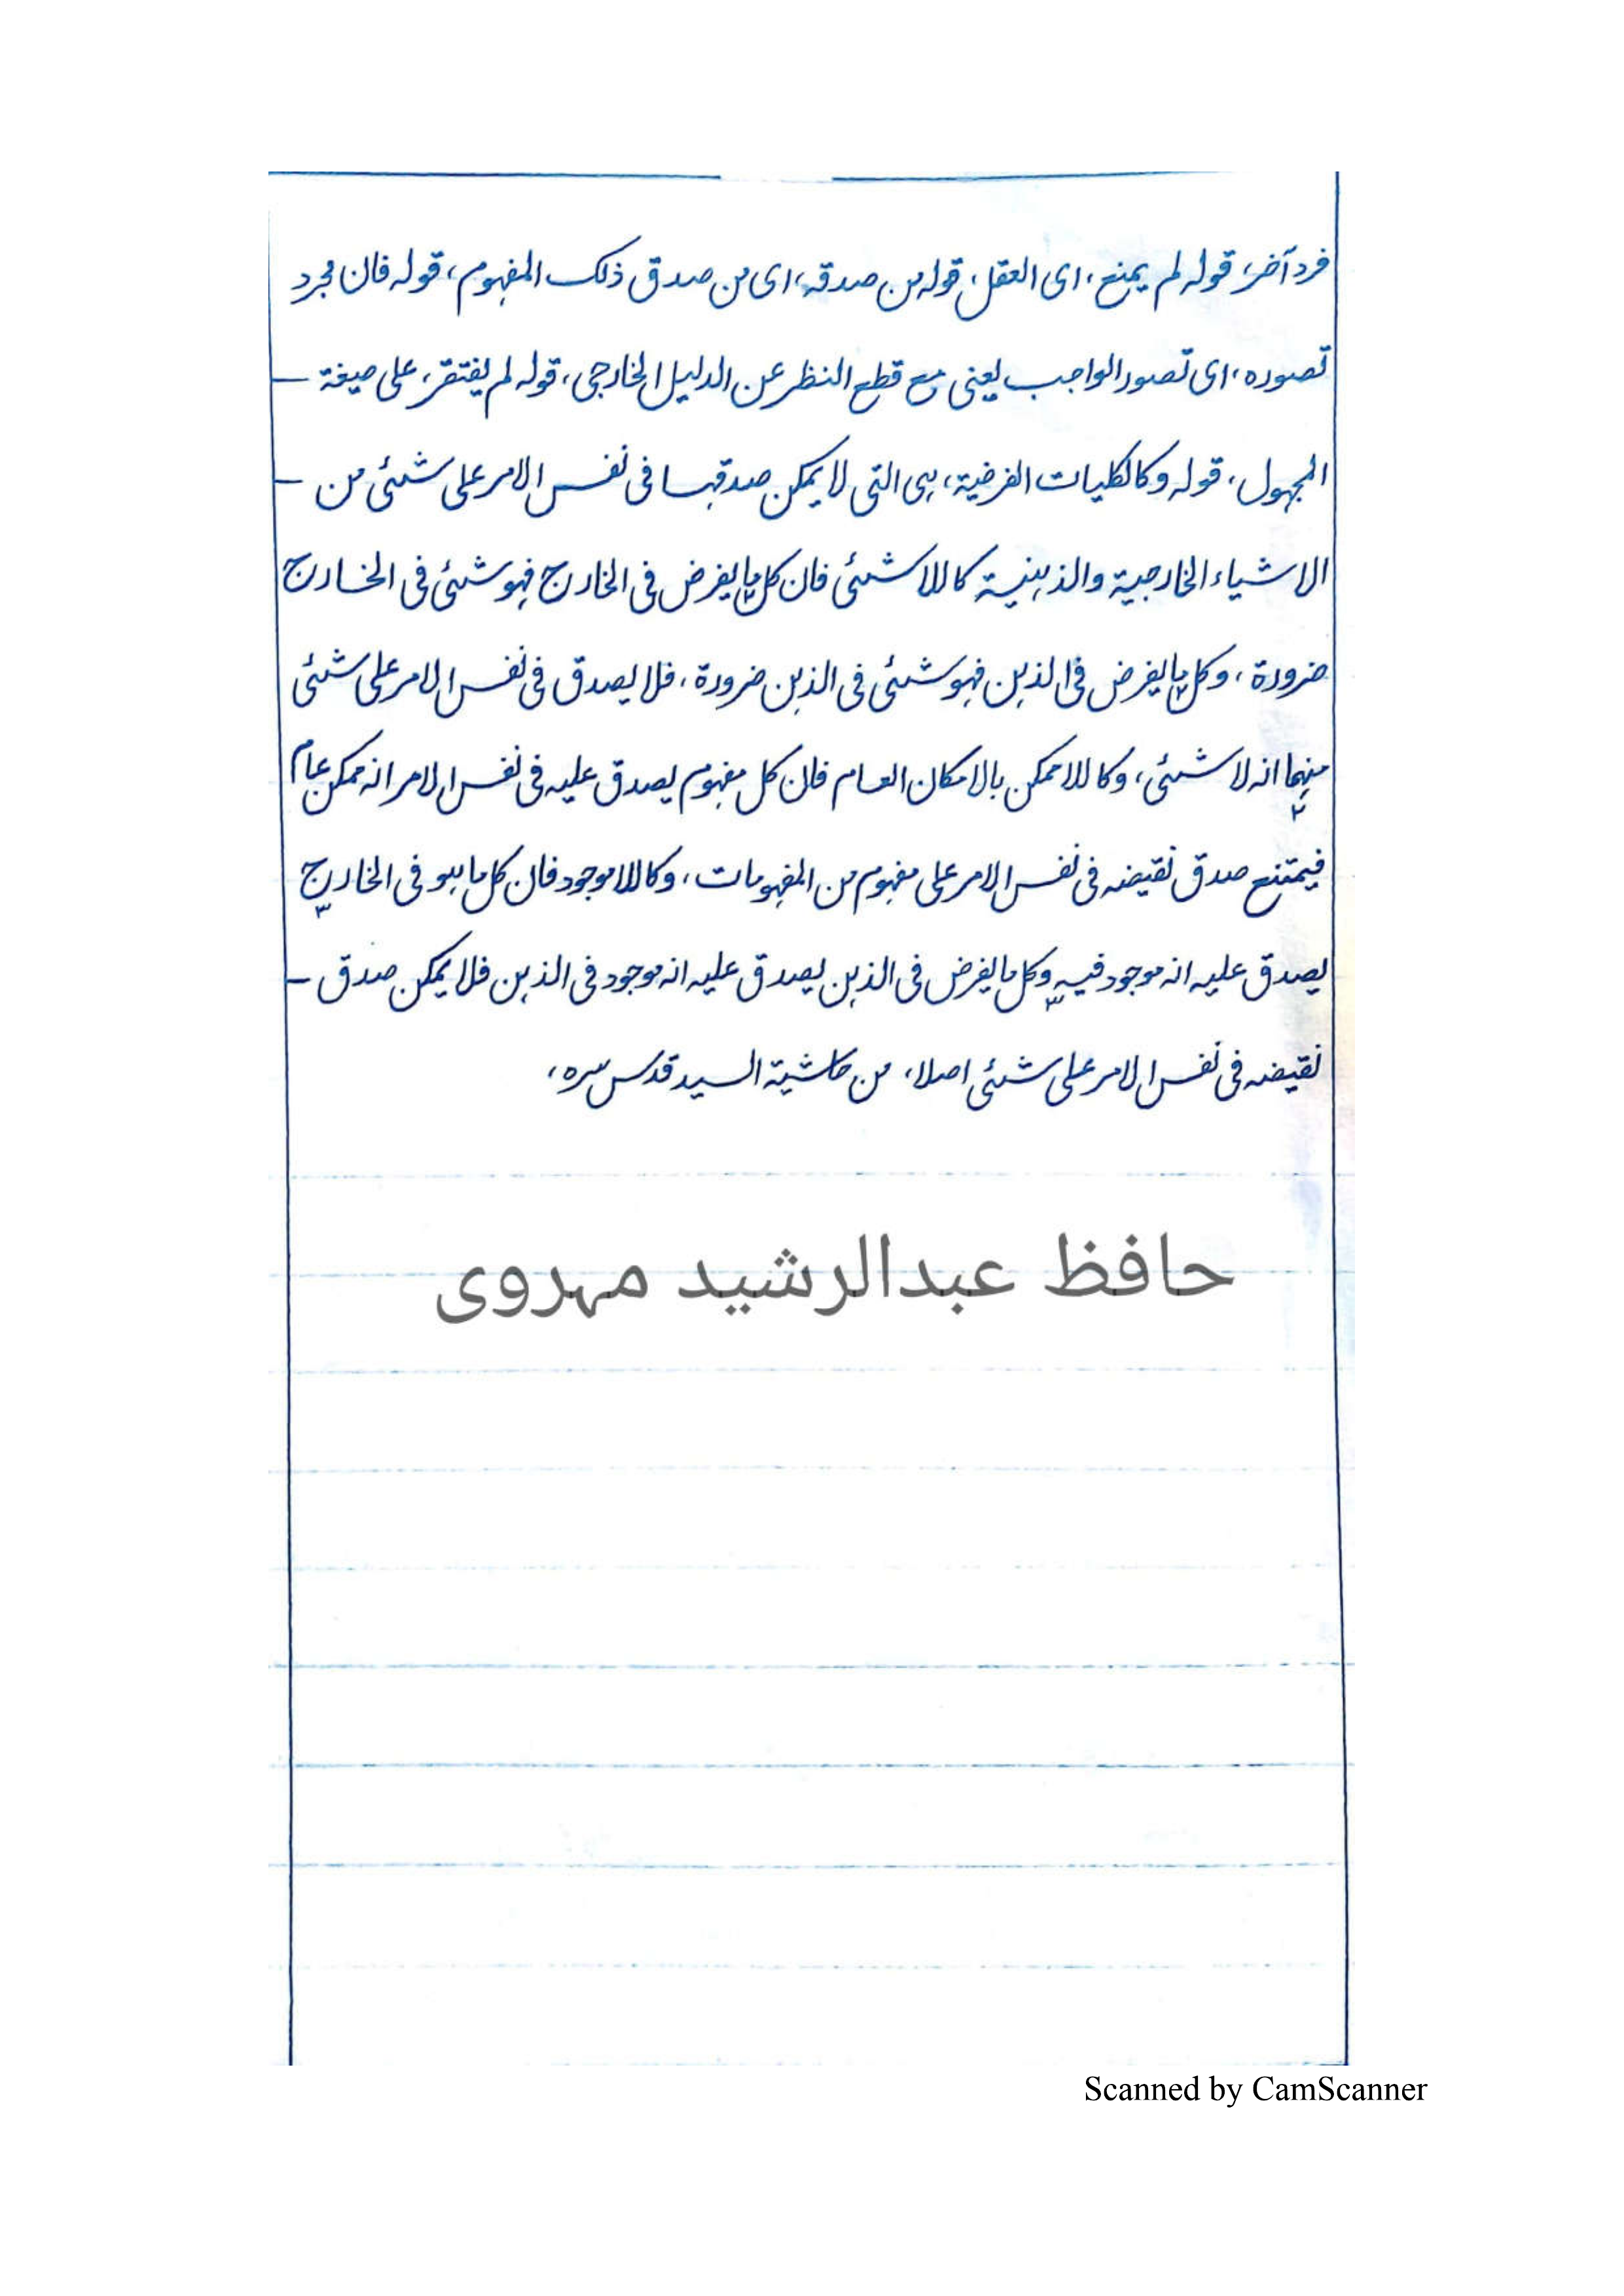 فرد آخر، قوله لم يمنع، اى العقل، قوله من صدقه، اى من صدق ذلك المفهوم، قوله فان مجرد
تصوره، اى تصور الواجب يعنى مع قطع النظر عن الدليل الخارجى، قوله لم يفتقر، على صيغة –
المجهول، قوله وكالكليات الفرضية، هى التى لا يمكن صدقها فى نفس الامر على شئى من –
الاشياء الخارجية والذهنية كاللاشئى فان كل ما يفرض فى الخارج فهو شئى فى الخارج
ضرورة، وكل ما يفرض فى الذهن فهو شئى فى الذهن ضرورة، فلا يصدق فى نفس الامر على شئى
منهما انه لا شئى، وكاللاممكن بالامكان العام فان كل مفهوم يصدق عليه فى نفس الامر انه ممكن عام
فيمتنع صدق نقيضه فى نفس الامر على مفهوم من المفهومات، وكاللاموجود فان كل ما هو فى الخارج
يصدق عليه انه موجود فيه وكل ما يفرض فى الذهن يصدق عليه انه موجود فى الذهن فلا يمكن صدق –
نقيضه فى نفس الامر على شئى اصلا، من حاشية السيد قدس سره،
حافظ عبدالرشید مهروی
Scanned by CamScanner